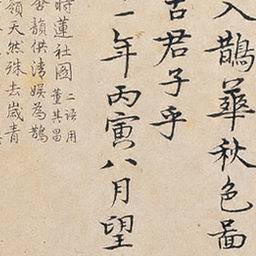 入鵲華秋色啚
古君子乎
一年丙寅八月望
時蓮社圖二語用董其昌
韻供清娛為鵲
領天然殊去嵗青